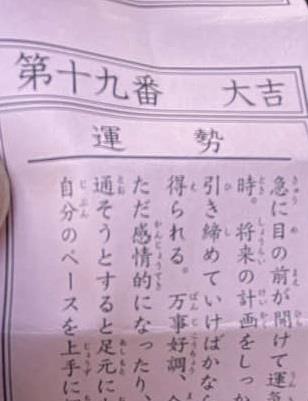 第十九番 大吉
運勢
急に目の前が開けて運気
時。将来の計画をしっか
引き締めていけばかなら
得られる。万事好調、
ただ感情的になったり、
通そうとすると足元に
自分のペースを上手に